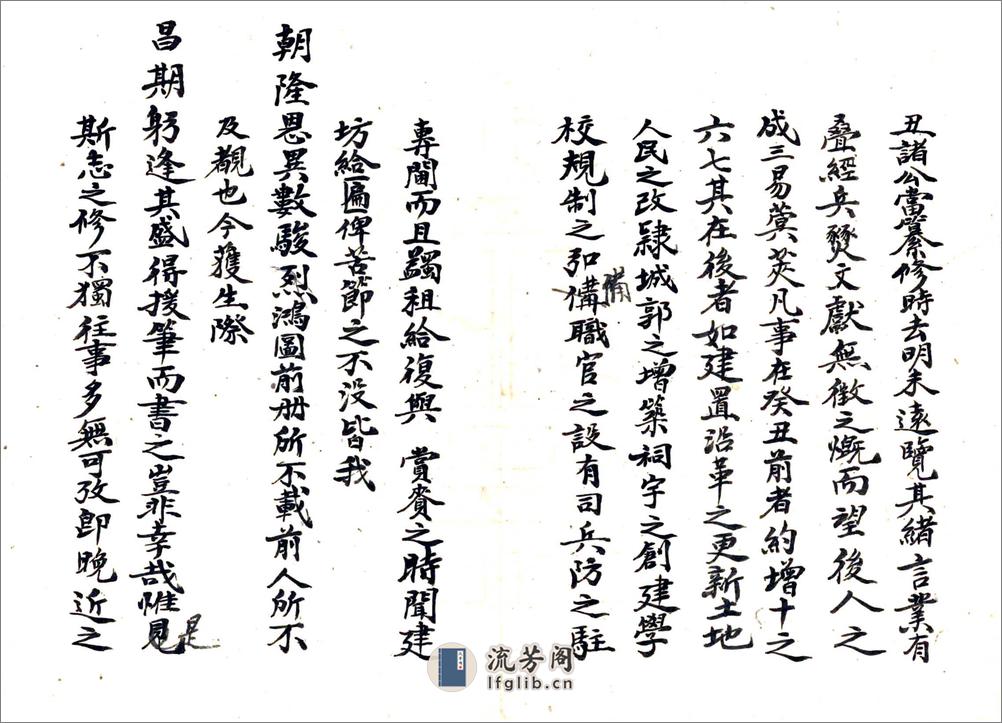 丑諸公當纂修時去明未遠覽其緒言業有
疊經兵燹文獻無徵之慨而望後人之
成三易蓂莢凡事在癸丑前者約增十之
六七其在後者如建置沿革之更新土地
人民之改隸城郭之增築祠宇之創建學
校規制之弘備職官之設有司兵防之駐
備
專閫而且蠲租給復興 賞賚之時聞建
坊給匾俾苦節之不沒皆我
朝隆恩異數駿烈鴻圖前册所不載前人所不
及覩也今獲生際
昌期躬逢其盛得援筆而書之豈非幸哉惟見
是
斯志之修不獨往事多無可攷即晚近之
流芳阁
lfglib.cn